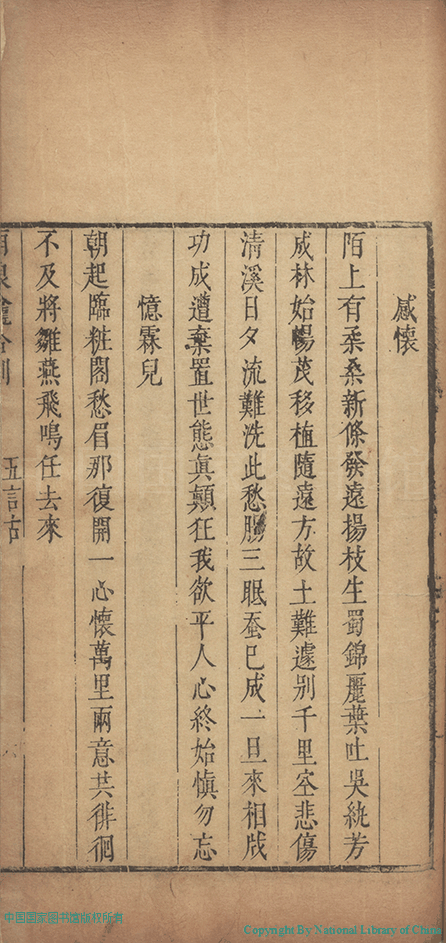 感懷
陌上有柔桑新條發遠揚枝生蜀錦麗葉吐吳紈芳
成林始暢茂移植隨遠方故土難遽別千里空悲傷
清溪日夕流難洗此愁腸三眠蚕已成一旦來相戕
功成遭棄置世態真顛狂我欲平人心終始慎勿忘
憶霖兒
朝起臨粧閣愁眉那復開一心懷萬里兩意共徘徊
不及將雛燕飛鳴任去來
五言古
中国国家图书馆版权所有
Copyright By National Library of China